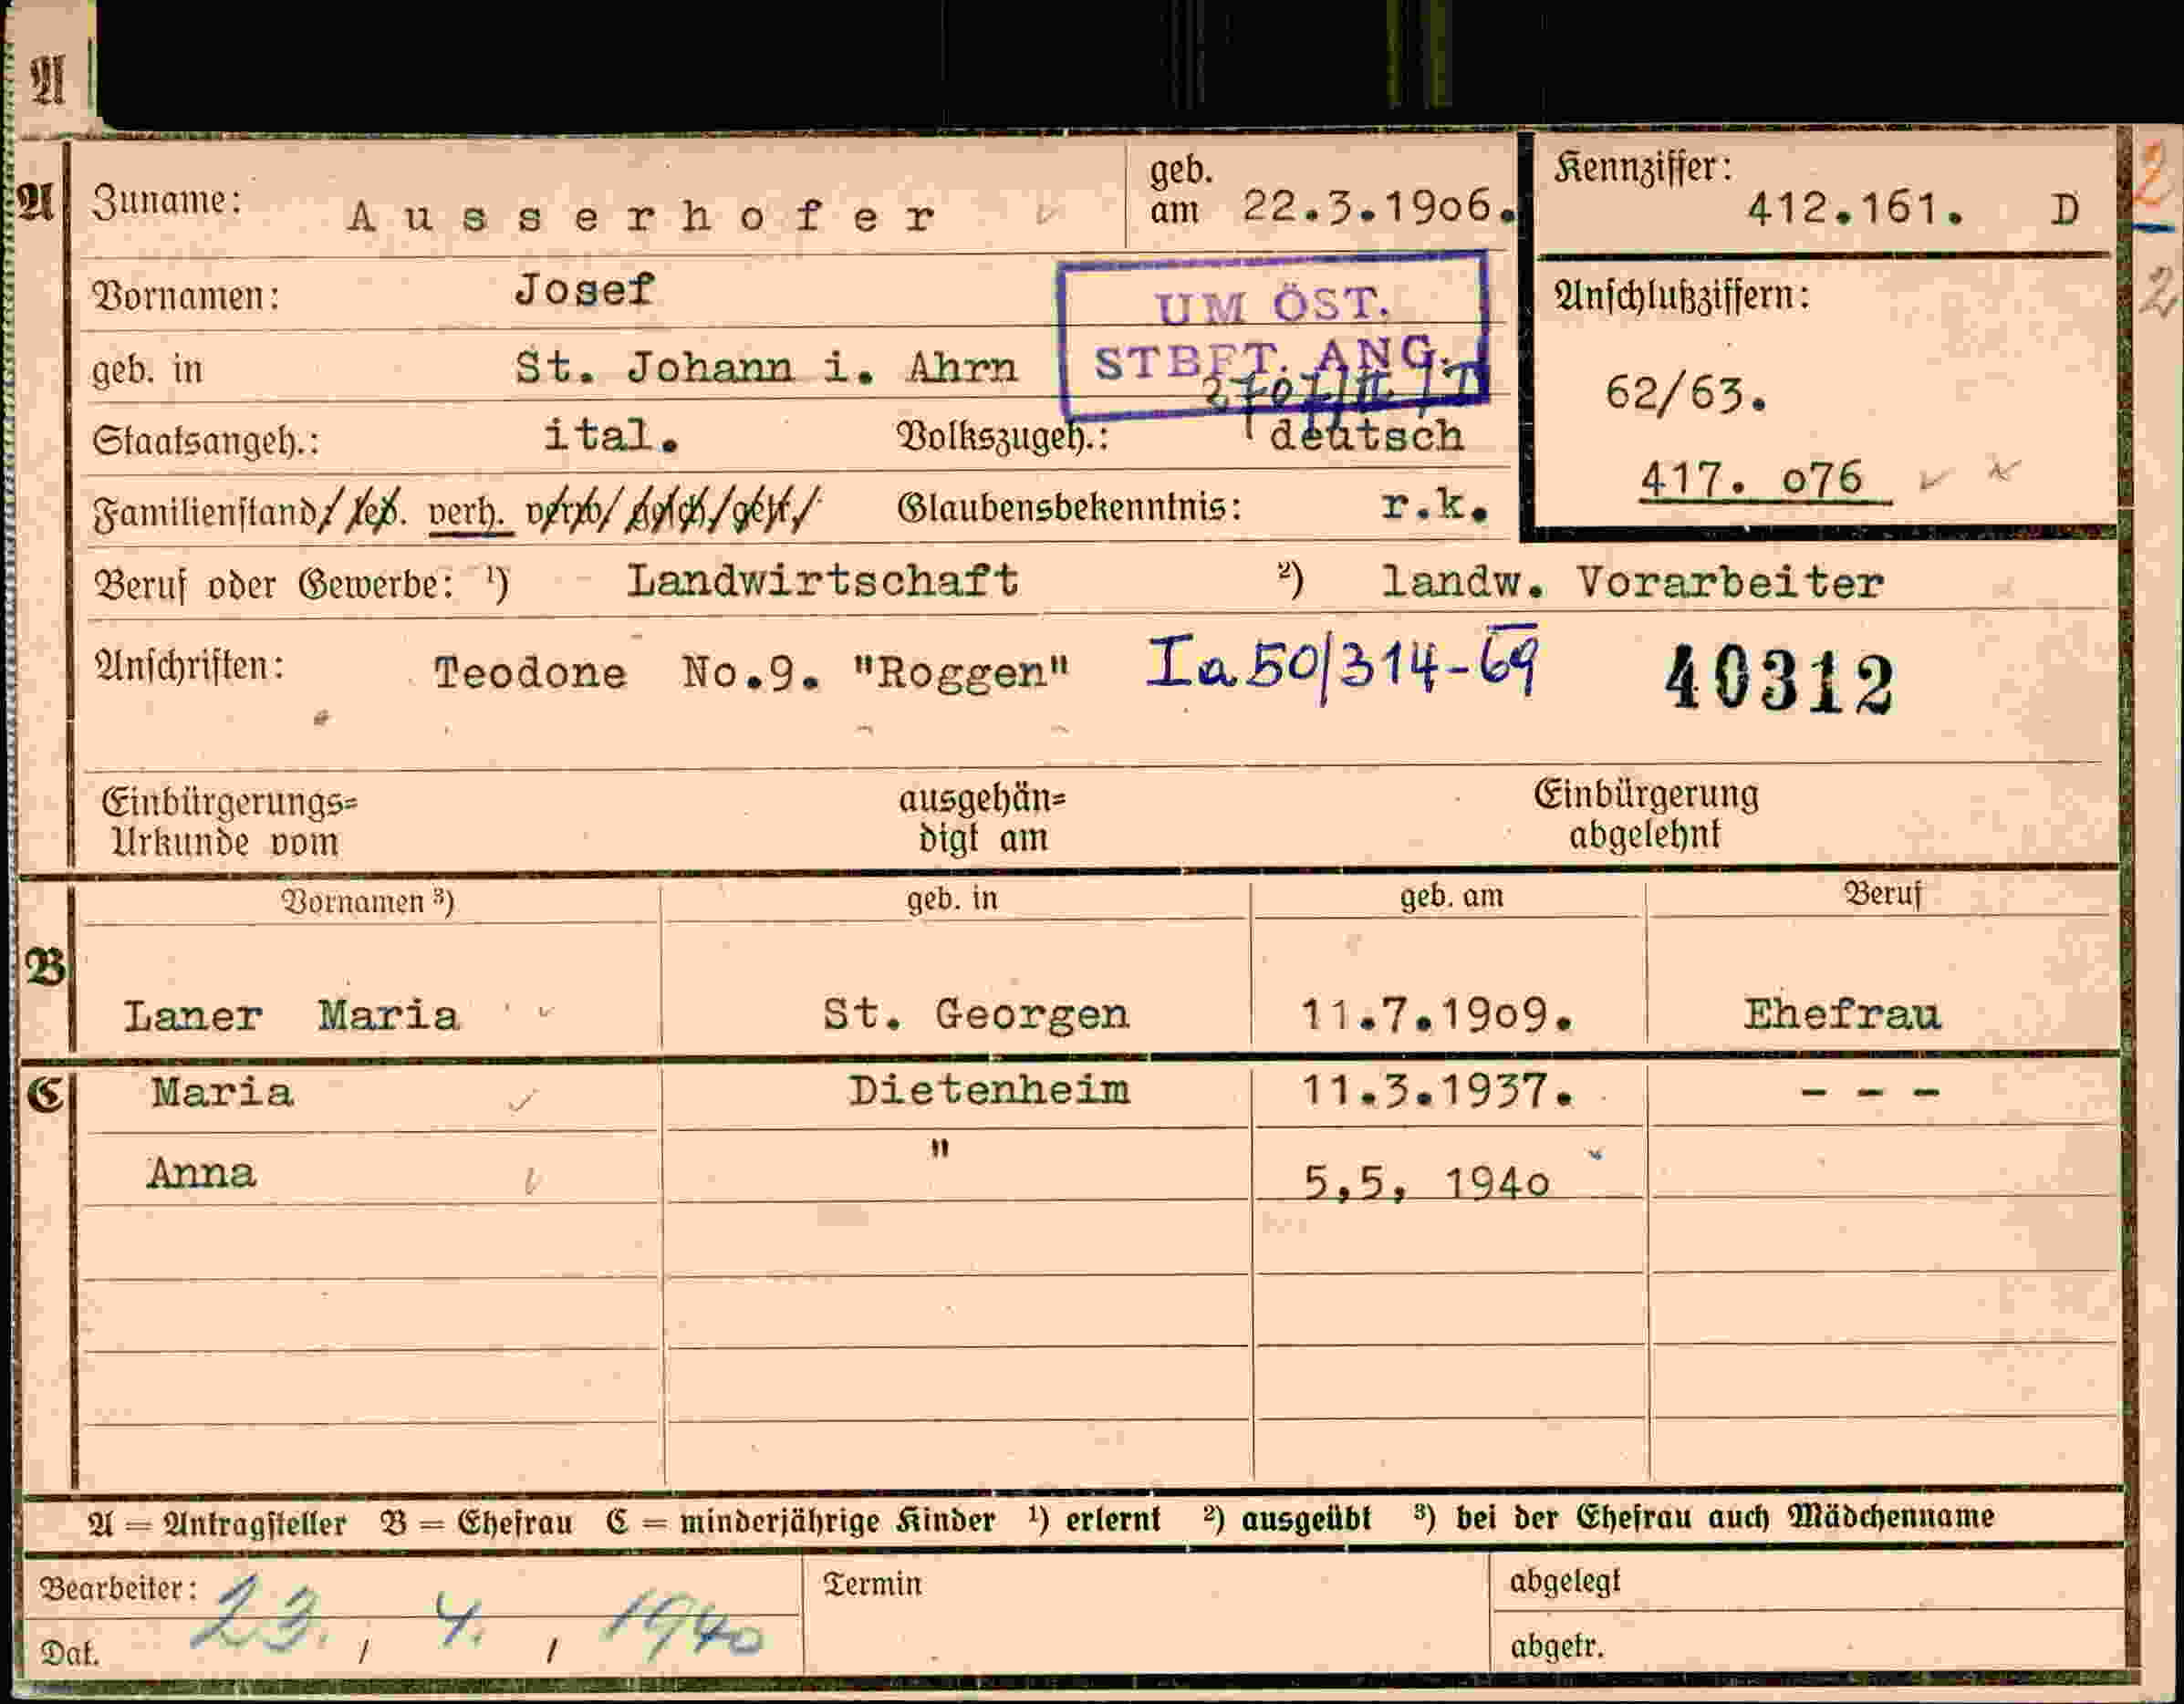 A
A Zuname: Ausserhofer geb. am 22.3.19o6. Kennziffer: 412.161. D 2
Vornamen: Josef UM ÖST. Anschlußziffern: 2
geb. in St. Johann i. Ahrn STBFT. ANG. 62/63.
Staatsangeh.: ital. Volkszugeh.: deutsch 417. o76
Familienstand/ led. verh. verw/ gesch/ get/ Glaubensbekenntnis: r.k.
Beruf oder Gewerbe: ¹) Landwirtschaft ²) landw. Vorarbeiter
Anschriften: Teodone No.9. "Roggen" Ia 50/314-69 40312
Einbürgerungs= ausgehän= Einbürgerung
Urkunde vom digt am abgelehnt
Vornamen ³) geb. in geb. am Beruf
B
Laner Maria St. Georgen 11.7.19o9. Ehefrau
C Maria Dietenheim 11.3.1937. - - -
Anna " 5,5, 194o
A = Antragsteller B = Ehefrau C = minderjährige Kinder ¹) erlernt ²) ausgeübt ³) bei der Ehefrau auch Mädchenname
Bearbeiter: Termin abgelegt
Dat. 23. / 4. / 1940 abgetr.